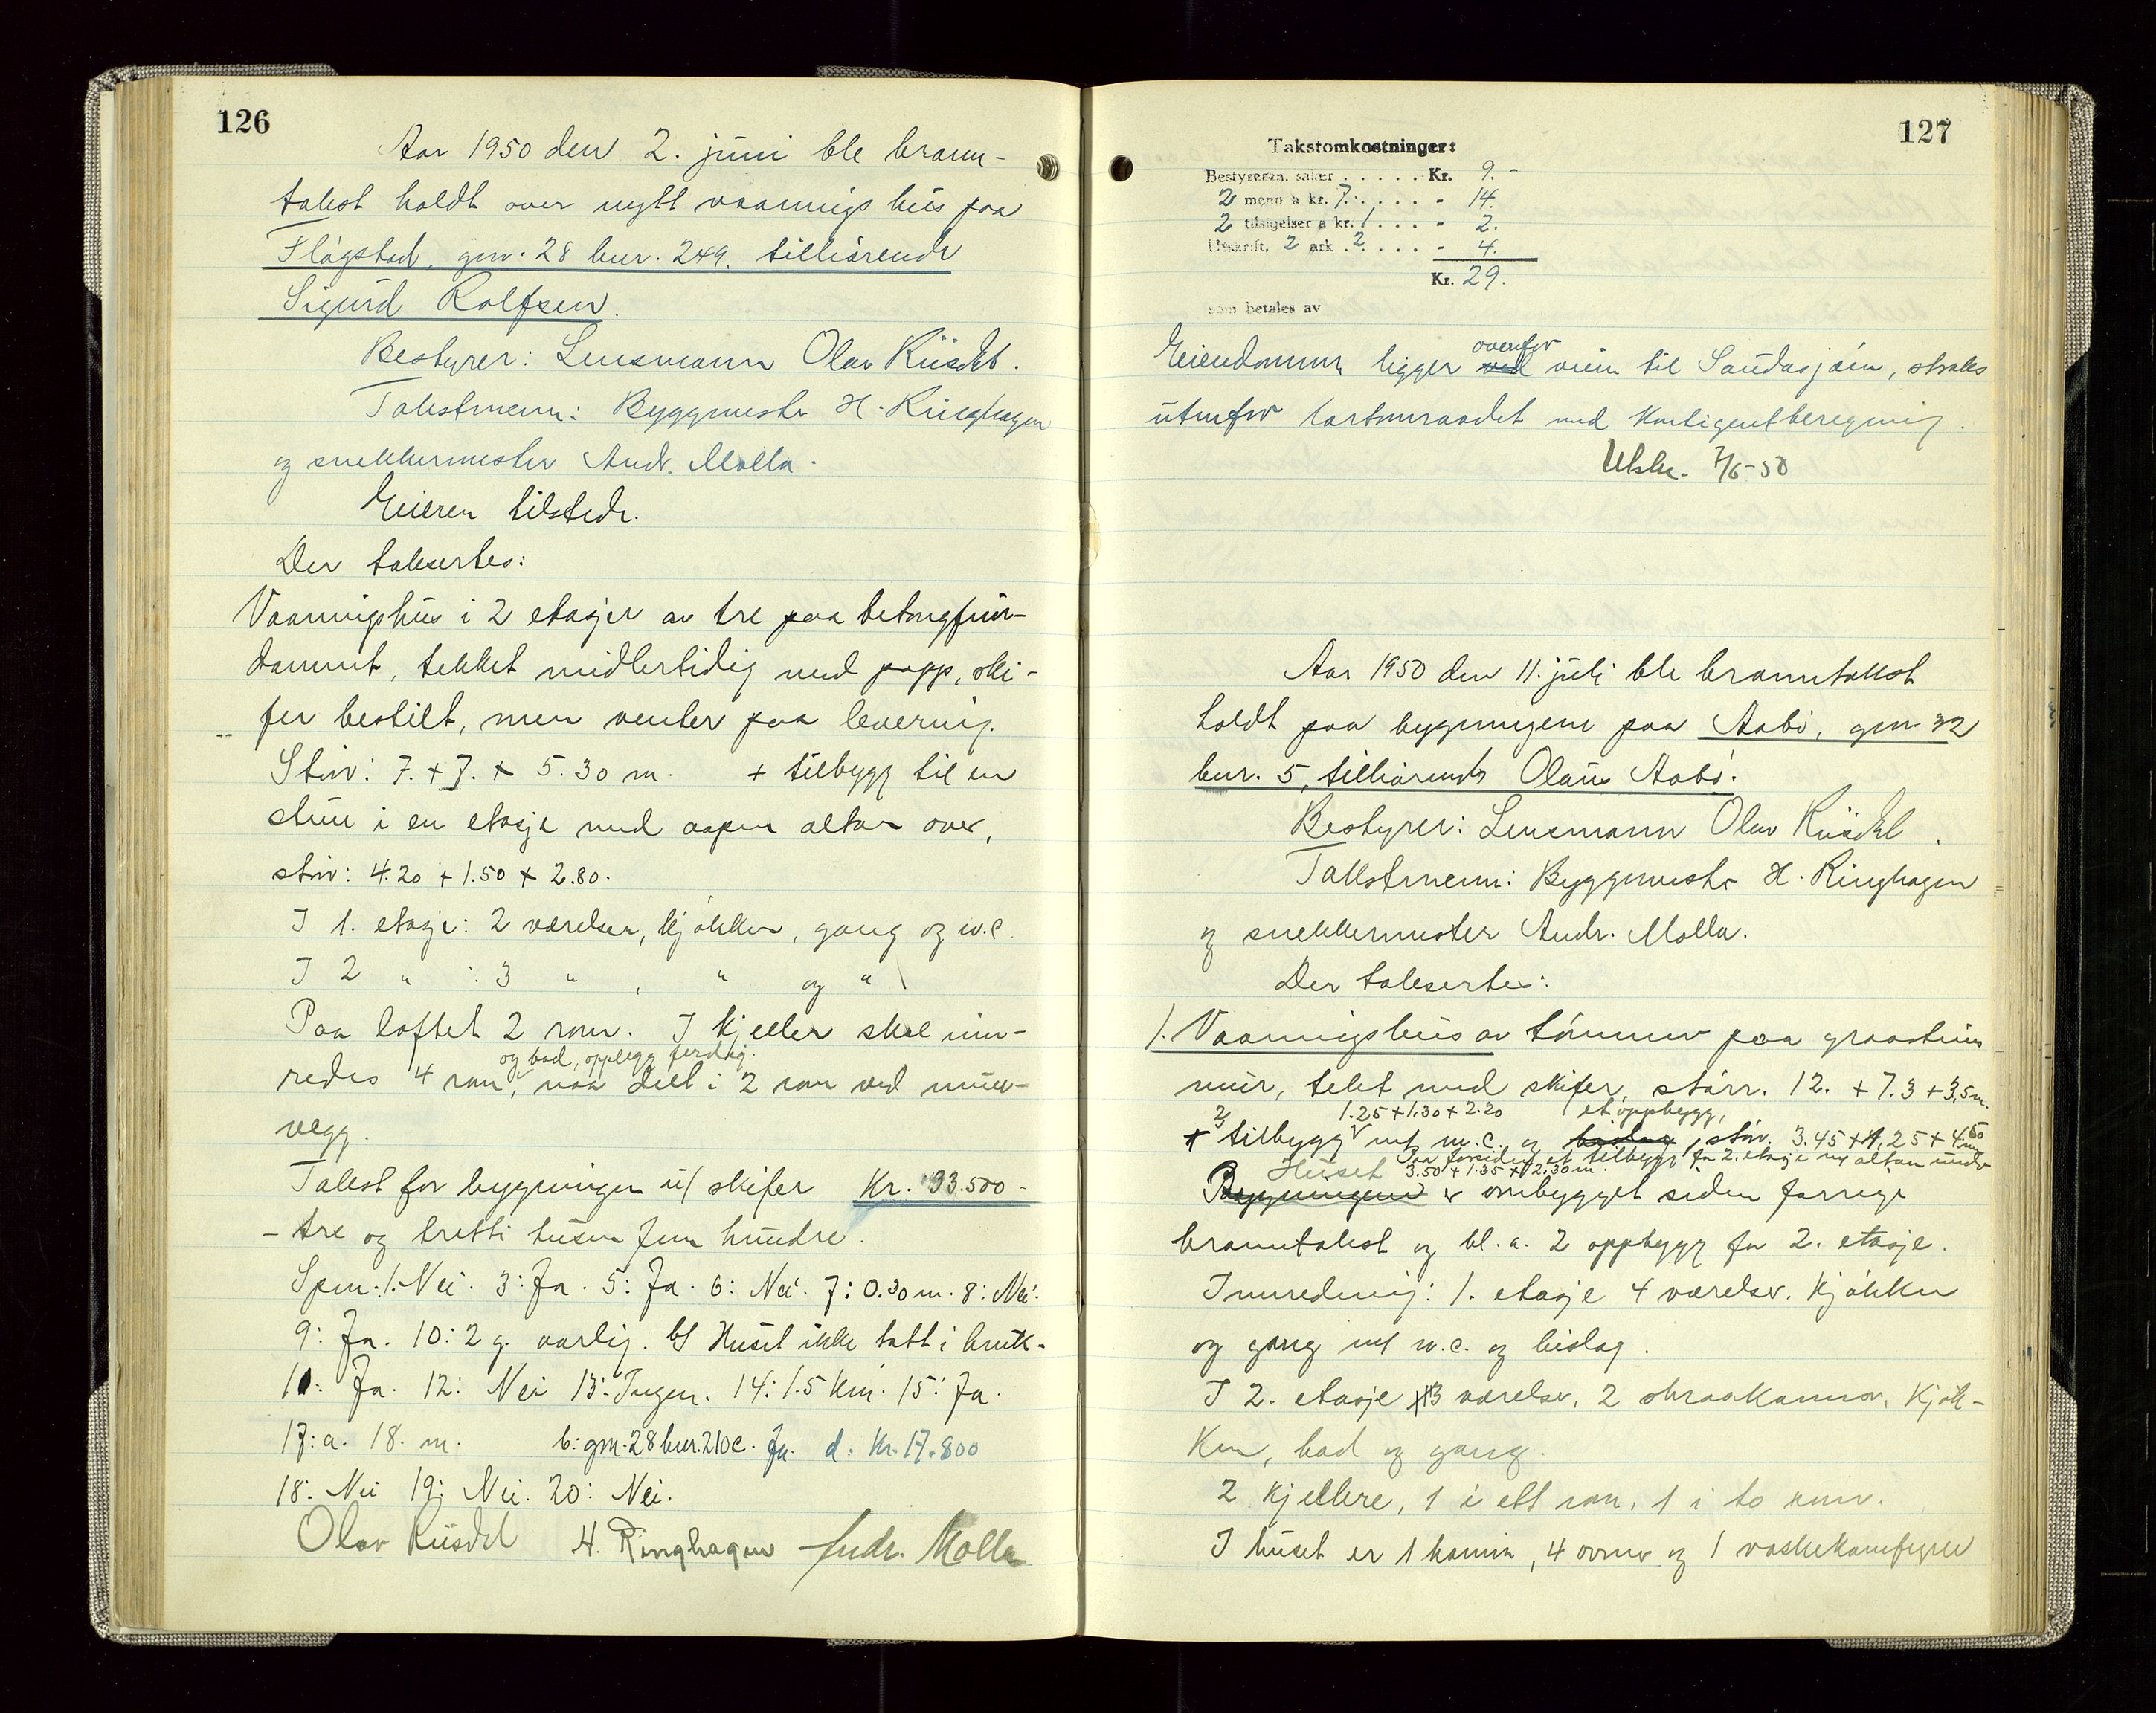 126
Aar 1950 den 2. juni ble brann-
takst holdt over nytt vaanings hus paa
Flagstad, gnr. 28 bnr. 249, tilhörende
Sigurd Rolfsen.
Bestyrer: Lensmann Olav Riisdal.
Takstmenn: Byggmester H. Ringhagen
og snekkermester Andr. Molla.
Eieren tilstede.
Der taksertes:
Vaaningshus i 2 etasjer av tre paa betongfun-
dament, tekket midlertidig med papp, ski-
fer bestilt, men venter paa levering.
Störr: 7. + 7. + 5.30 m. + tilbygg til en
stue i en etasje med aapen altan over,
störr: 4.20 + 1.50 + 2.80.
I 1. etasje: 2 værelser, kjökken, gang og w.c.
I 2 " : 3 " , " og "
Paa loftet 2 rom. I kjeller skal inn-
og bad, opplegg ferdig.
redes 4 rom, naa delt i 2 rom ved mur-
vegg.
Takst for bygningen u/ skifer Kr. 33.500 -
- tre og tretti tusen fem hundre.
Spm. 1: Nei. 3: Ja. 5: Ja. 6: Nei. 7: 0.30 m. 8: Nei.
9: Ja. 10: 2 g. aarlig. b/ Huset ikke tatt i bruk.
11: Ja. 12: Nei 13: Ingen. 14: 1.5 km. 15: Ja.
17: a. 18. m. b: gnr. 28 bnr. 210 c. Ja. d: Kr. 17.800
18: Nei 19: Nei. 20: Nei.
Olav Riisdal H. Ringhagen Andr. Molla
127
Takstomkostninger:
Bestyreren, saker . . . . . Kr. 9. -
2 menn a kr. 7. . . . . - 14.
2 tilsigelser a kr. 1 . . . - 2.
Utskrift, 2 ark . 2 . . . . - 4.
Kr. 29.
som betales av
overfor
Eiendommen ligger ved veien til Saudasjöen, straks
utenfor kartomraadet med kontigentberegning.
Utskr. 7/6-50
Aar 1950 den 11. juli ble branntakst
holdt paa bygningene paa Aabö, gnr. 32
bnr. 5, tilhörende Olaus Aabö.
Bestyrer: Lensmann Olav Riisdal.
Takstmenn: Byggmester H. Ringhagen
og snekkermester Andr. Molla.
Der taksertes:
1. Vaaningshus av tömmer paa graasteins
mur, tekt med skifer, störr. 12. + 7.3 + 3,5 m.
2 1.25 + 1.30 + 2.20 et oppbygg,
+ tilbygg m/ w.c. og bislag, störr. 3.45 + 4,25 + 4.50
Paa forsiden et tilbygg fra 2. etasje m/ altan under
Huset 3.50 + 1.35 + 2.30 m.
Bygningene er ombygget siden forrige
branntakst og bl. a. 2 oppbygg for 2. etasje.
Innredning: 1. etasje 4 værelser, kjökken
og gang m/ w.c. og bislag.
I 2. etasje 3 værelser, 2 skraakammer, kjök-
ken, bad og gang.
2 kjellere, 1 i ett rom, 1 i to rom.
I huset er 1 kamin, 4 ovner og 1 vaskekomfyrer